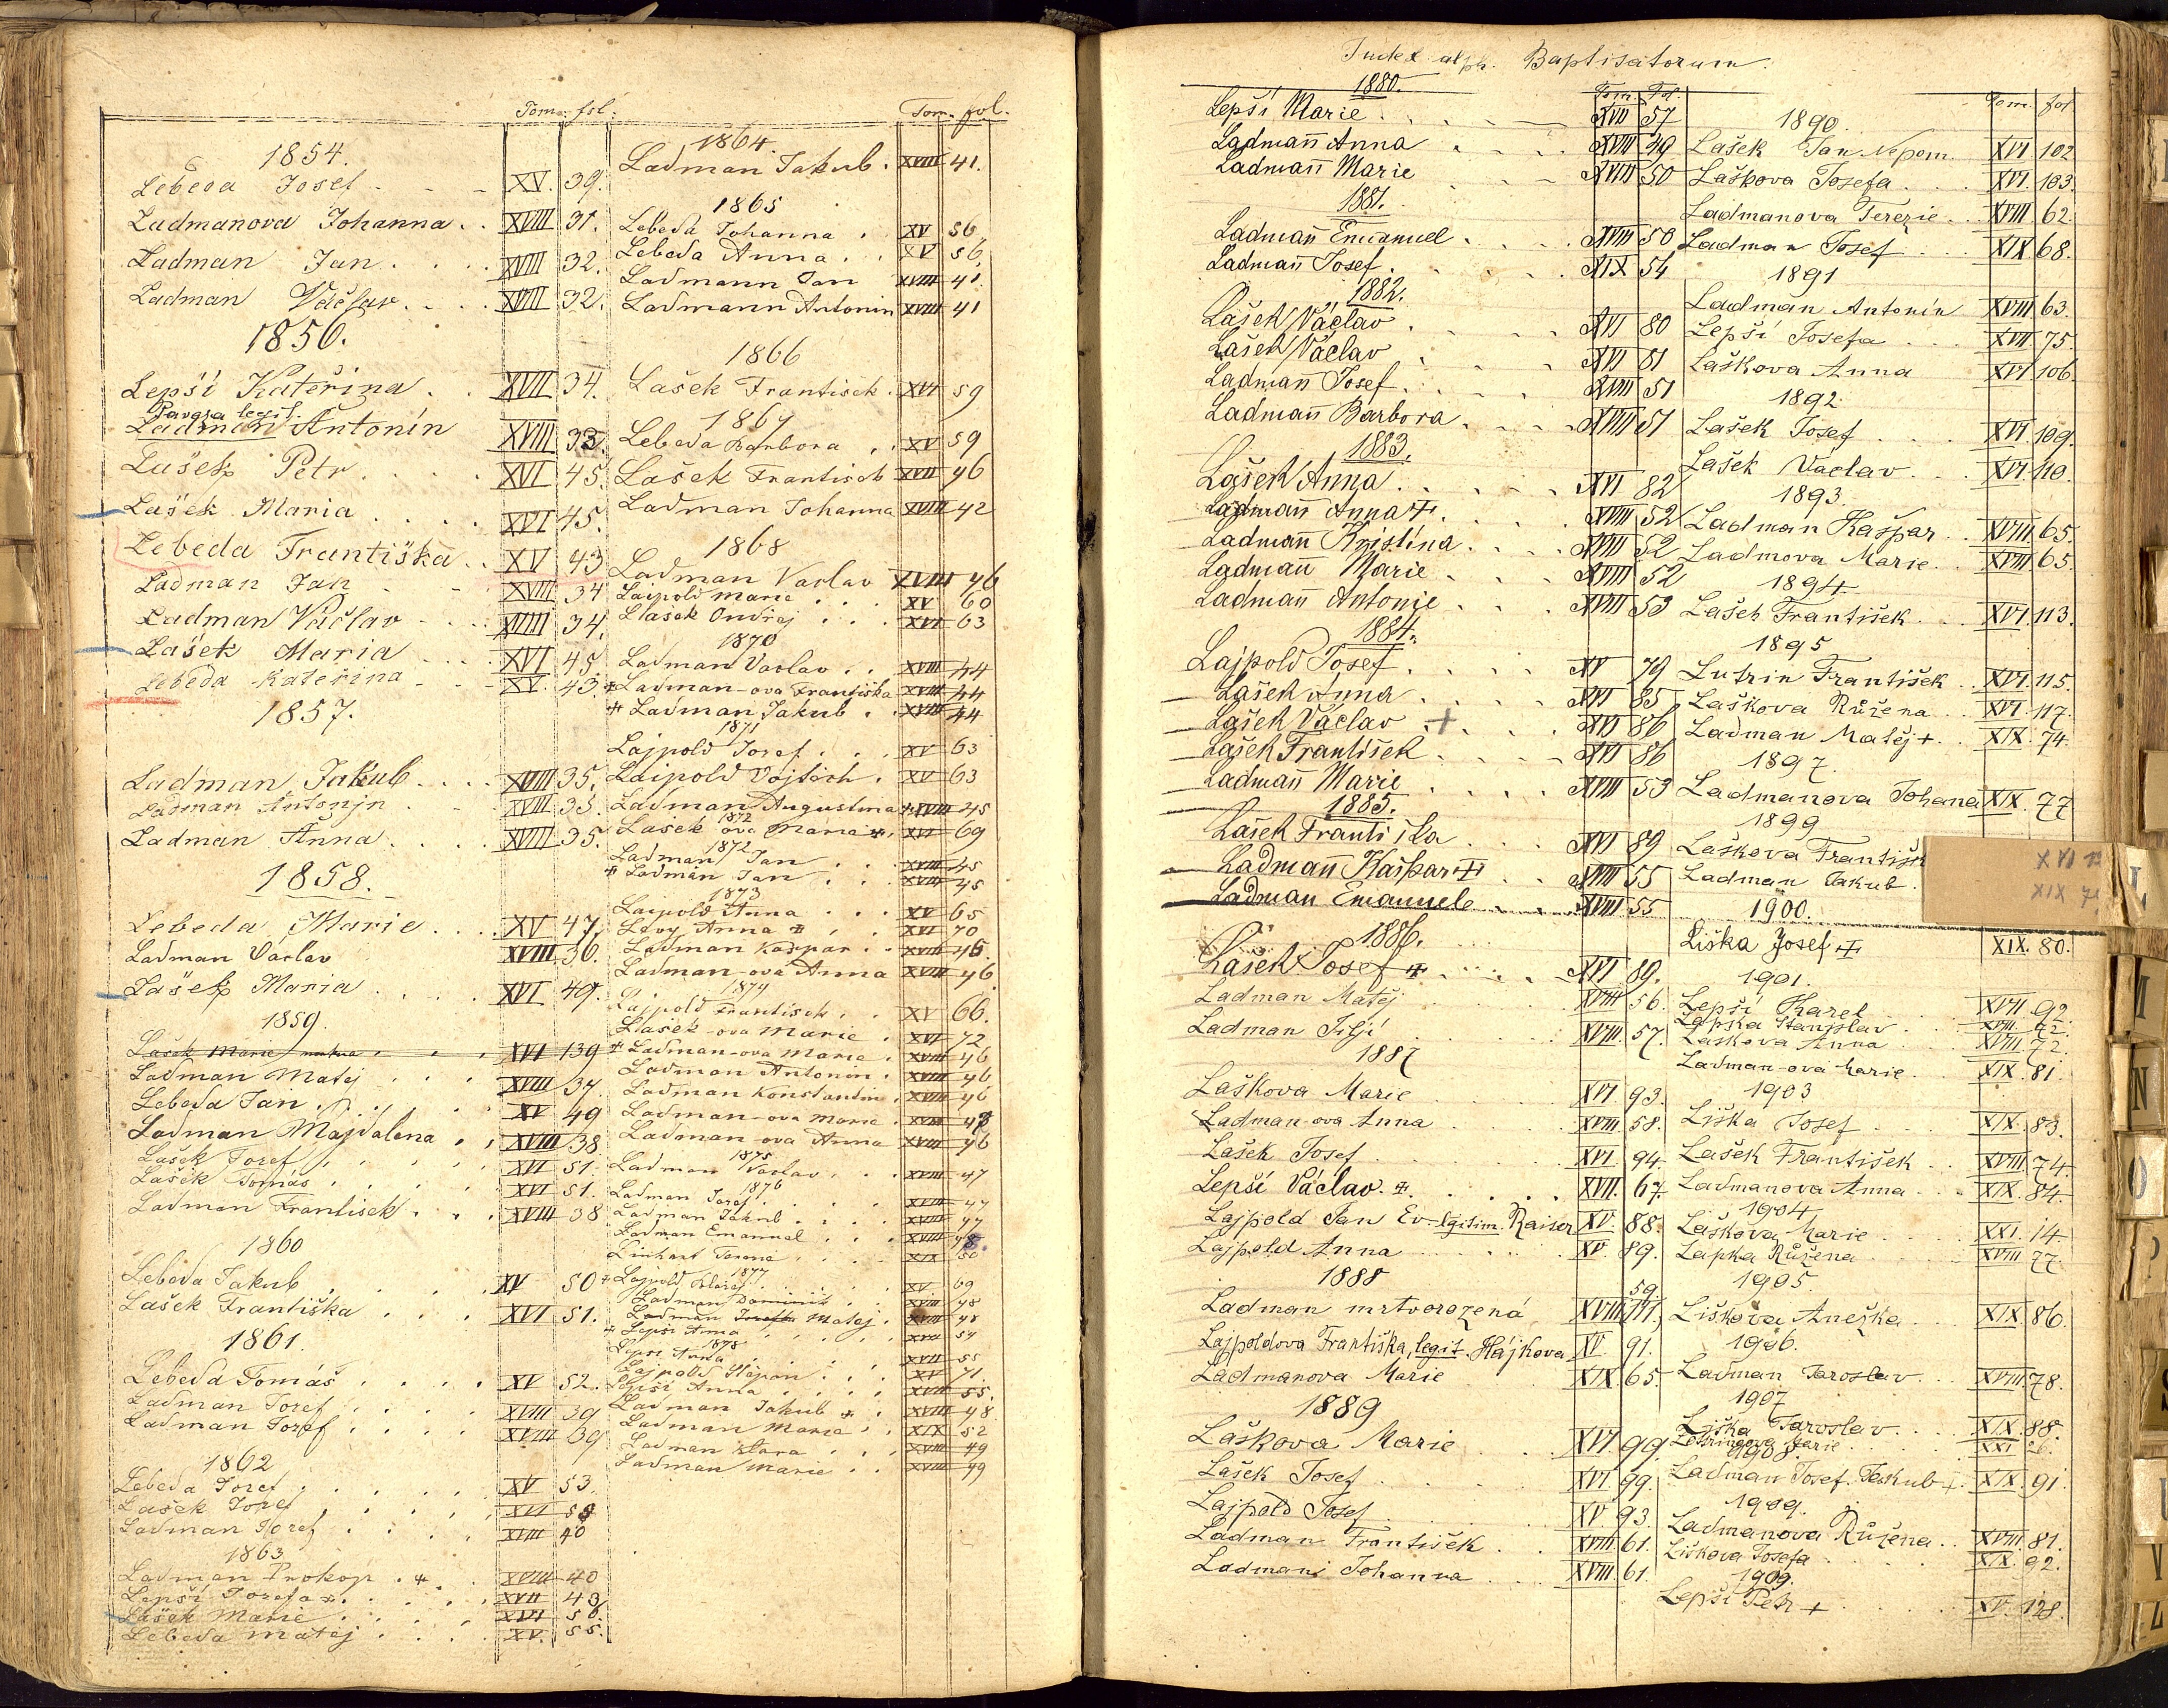 Tom. fol.
1854.
Lebeda Josef XV. 39.
Ladmanova Johanna XVIII 31.
Ladman Jan XVIII 32.
Ladman Václav XVIII 32.
1856.
Lepší Kateřina XVII 34.
legit.
Ladman Antonín XVIII 33.
Lašek Petr XVI 45.
Lašek Maria XVI 45.
Lebeda Františka XV 43
Ladman Jan XVIII 34
Ladman Václav XVIII 34.
Lašek Maria XVI 45
Lebeda Kateřina XV. 43.
1857.
Ladman Jakub XVIII 35.
Ladman Antonjn XVIII 35.
Ladman Anna XVIII 35.
1858.
Lebeda Marie XV 47.
Ladman Václav XVIII 36.
Lašek Maria XVI 49.
1859.
Lašek Marie XVI 139
Ladman Matěj XVIII 37.
Lebeda Jan XV 49
Ladman Majdalena XVIII 38
Lašek Josef XVI 51.
Lašek Tomás XVI 51.
Ladman Frantisek XVIII 38
1860
Lebeda Jakub XV 50
Lašek Františka XVI 51.
1861.
Lebeda Tomáš XV 52.
Ladman Josef XVIII 39
Ladman Josef XVIII 39
1862
Lebeda Josef XV 53.
Lašek Josef XVI
Ladman Josef XVIII 40
1863
Ladman Prokop + XVIII 40
Lepší Josefa XVII 43
Lašek Marie XVI 56.
Lebeda Matěj XV. 55.
Tom. fol.
1864.
Ladman Jakub XVIII 41.
1865
Lebeda Johanna XV 56
Lebeda Anna XV 56.
Ladmann Jan XVIII 41.
Ladmann Antonin XVIII 41
1866
Lašek Frantisek XVI 59
1867
Lebeda Barbora XV 59
Lašek Frantisek XVII 46
Ladman Johanna XVIII 42
1868
Ladman Vaclav XVIII 46
Laipold Marie XV 60
Lasek Ondřej XVI 63
1870
Ladman Vaclav XVIII 44
+ Ladman-ova Františka XVIII 44
+ Ladman Jakub XVIII 44
1871
Lajpold Josef XV 63
Laipold Vojtěch XV 63
Ladman Augustina + XVIII 45
1872
Lasek ova Maria + XVI 69
1872
Ladman Jan XVIII 45
+ Ladman Jan XVIII 45
1873
Laipold Anna XV 65
Levy Anna + XVI 70
Ladman Kašpar XVIII 46.
Ladman-ova Anna XVIII 46.
1874
Lajpold Frantisek XV 66.
Lasek-ova Marie XVI 72
+ Ladman-ova Marie XVIII 46
Ladman Antonin XVIII 46
Ladman Konstantin XVIII 46
Ladman-ova Marie XVIII
Ladman-ova Anna XVIII 46
1875
Ladman Vaclav XVIII 47
1876
Ladman Josef XVIII 47
Ladman Jakub XVIII 47
Ladman Emanuel XVIII 48.
Linhart Terezie XIX 50
1877
+ Lajpold XV 69
Ladman Dominik XVIII 48
Ladman Matej XVIII 48
+ Lepsi Anna XVII 54
1878
Lepsi Anna XVII 55
Lajpold Štěpan XV 71.
Lepsi Anna XVII 55.
Ladman Jakub + XVIII 48
Ladman Maria XIX 52
Ladman Klara XVIII 49
Ladman Marie XVIII 49
Index alph. Baptisatorum.
1880. Tom. Fol.
Lepší Marie XVII 57
Ladmañ Anna XVIII 49
Ladmañ Marie XVIII 50
1881.
Ladmañ Emanuel XVIII 50
Ladmañ Josef XIX 54
1882.
Lašek Václav XVI 80
Lašek Václav XVI 81
Ladmañ Josef XVIII 51
Ladmañ Barbora XVIII 51
1883.
Lašek Anna XVI 82
Ladmañ Anna + XVIII 52
Ladmañ Kristina XVIII 52
Ladmañ Marie XVIII 52
Ladmañ Antonie XVIII 53
1884.
Lajpold Josef XV 79
Lašek Anna XVI 85
Lašek Václav + XVI 86
Lašek František XVI 86
Ladmañ Marie XVIII 53
1885.
Lašek Františka XVI 89
Ladmañ Kašpar + XVIII 55
Ladman Emanuele XVIII 55
1886.
Lašek Josef + XVI 89.
Ladman Matěj XVIII 56.
Ladman Jiljí XVIII. 57.
1887
Laškova Marie XVI. 93.
Ladman-ova Anna XVIII. 58.
Lašek Josef XVI 94.
Lepší Václav. + XVII. 67.
Lajpold Jan Ev. legitim. Kaiser XV. 88.
Lajpold Anna XV. 89.
1888
59.
Ladman mrtvorozená XVIII
Lajpoldova Františka, legit. Hájkova XV. 91.
Ladmanova Marie XIX 65.
1889
Laškova Marie XVI 99
Lašek Josef XVI. 99.
Lajpold Josef XV. 93.
Ladman František XVIII. 61.
Ladmani Johanna XVIII. 61.
Tom. fol
1890.
Lašek Jan Nepom. XVI 102
Laškova Josefa XVI. 103.
Ladmanova Terezie XVIII 62.
Ladman Josef XIX 68.
1891
Ladman Antonín XVIII 63.
Lepší Josefa XVII 75.
Laškova Anna XVI 106.
1892.
Lašek Josef XVI. 109.
Lašek Václav XVI. 110.
1893.
Ladman Kašpar XVIII. 65.
Ladmova Marie XVIII 65.
1894.
Lašek František XVI. 113.
1895
Lutrin František XVI. 115.
Laškova Růžena XVI. 117.
Ladman Matěj + XIX. 74.
1897.
Ladmanova Johana XIX. 77
1899
Laškova Františk XVI
Ladman Jakub XIX
1900.
Liška Josef + XIX. 80.
1901.
Lepší Karel XVII 92
Lapka Stanislav XVIII
Laskova Anna XVIII 72.
Ladman-ova Marie XIX. 81.
1903
Liška Josef XIX. 83.
Lašek František XVIII. 74.
Ladmanova Anna XIX. 84.
1904
Laškova Marie XXI. 14.
Lapka Růžena XVIII 77.
1905.
Liškova Anežka XIX. 86.
1906.
Ladman Jaroslav XVIII. 78.
1907
Liška Jaroslav XIX. 88.
Marie XXI
1908.
Ladman Josef Jakub + XIX. 91.
1909.
Ladmanova Růžena XVIII. 81.
Liškova Josefa XIX. 92.
1909.
Lepší Petr + XV. 128.
L
M
N
O
P
S